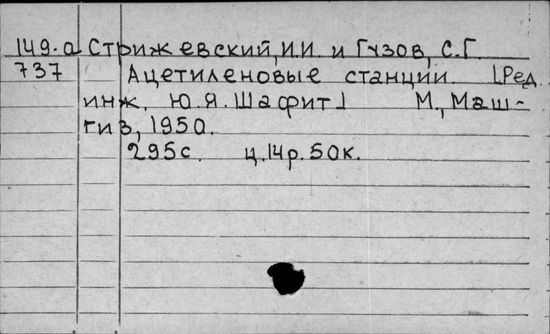 149.а Стрижевский, И.И. и Гузов, С.Г.
737 Ацетиленовые станции. [Ред.
инж. Ю.Я. Шафит] М., Маш-
гиз, 1950.
295с. ц.14р.50к.